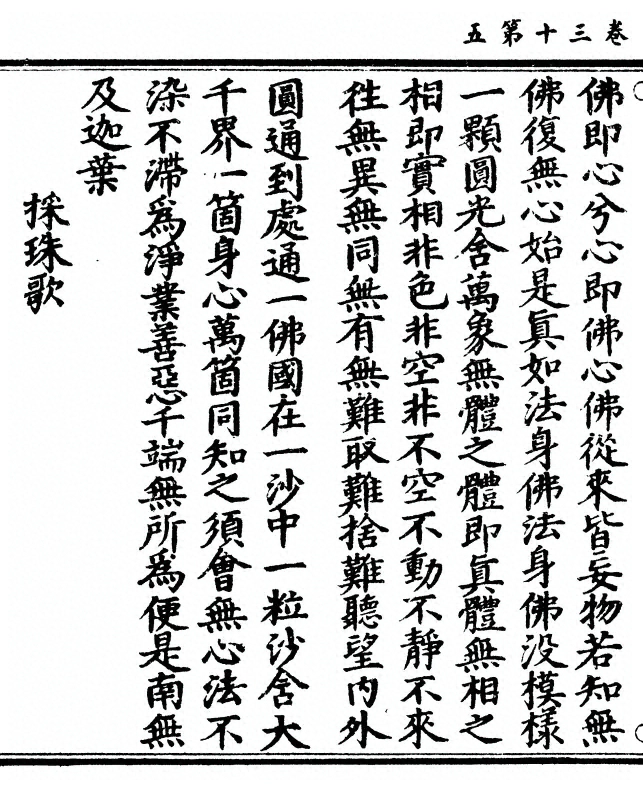 卷三十第五
佛即心兮心即佛心佛從來皆妄物若知無
佛復無心始是眞如法身佛法身佛没模樣
一顆圓光含萬象無體之體即眞體無相之
相即實相非色非空非不空不動不靜不來
徃無異無同無有無難取難捨難聽望內外
圓通到處通一佛國在一沙中一粒沙含大
千界一箇身心萬箇同知之須會無心法不
染不滯爲淨業善惡千端無所爲便是南無
及迦葉
採珠歌